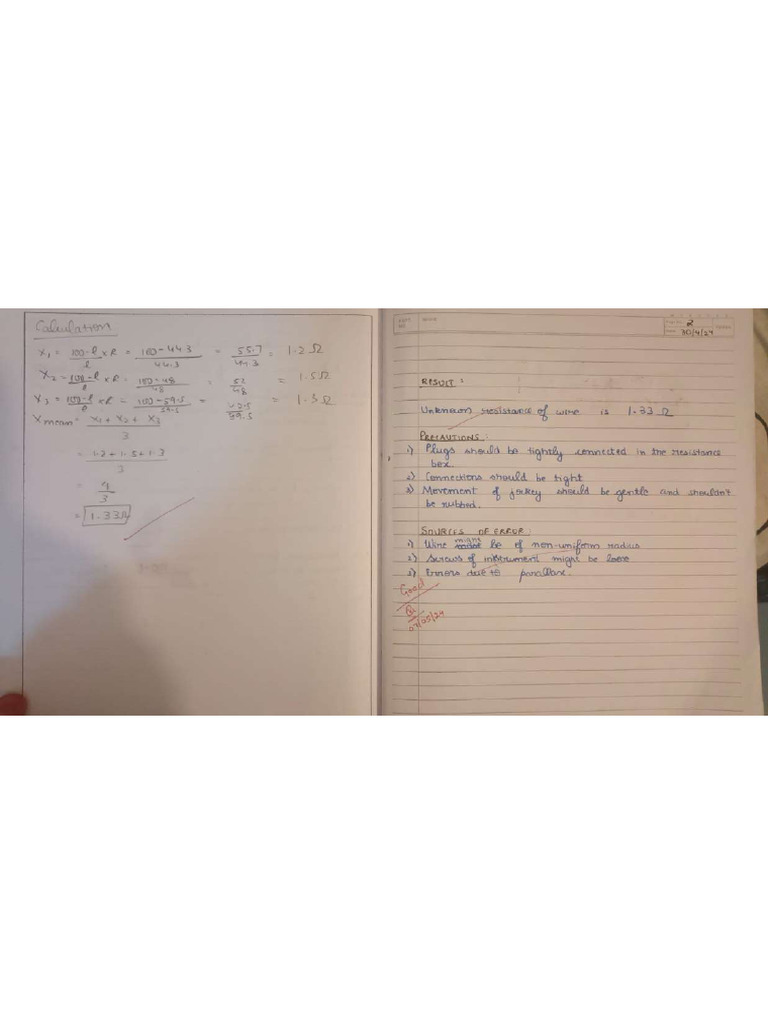 Calculation
X₁ = 100-l/l × R = 100-44.3/44.3 = 55.7/44.3 = 1.2 Ω
X₂ = 100-l/l × R = 100-48/48 = 52/48 = 1.5Ω
X₃ = 100-l/l × R = 100-59.5/59.5 = 42.5/59.5 = 1.3 Ω
X mean = X₁ + X₂ + X₃/3
= 1.2 + 1.5 + 1.3/3
= 4/3
= 1.33Ω
2
30/4/24
RESULT :
Unknown resistance of wire is 1.33 Ω
PRECAUTIONS :
1) Plugs should be tightly connected in the resistance
box.
2) Connections should be tight
3) Movement of jockey should be gentle and shouldn't
be rubbed.
SOURCES OF ERROR :
1) Wire might be of non-uniform radius
2) Screws of instrument might be loose
3) Errors due to parallax.
Good
07/05/24